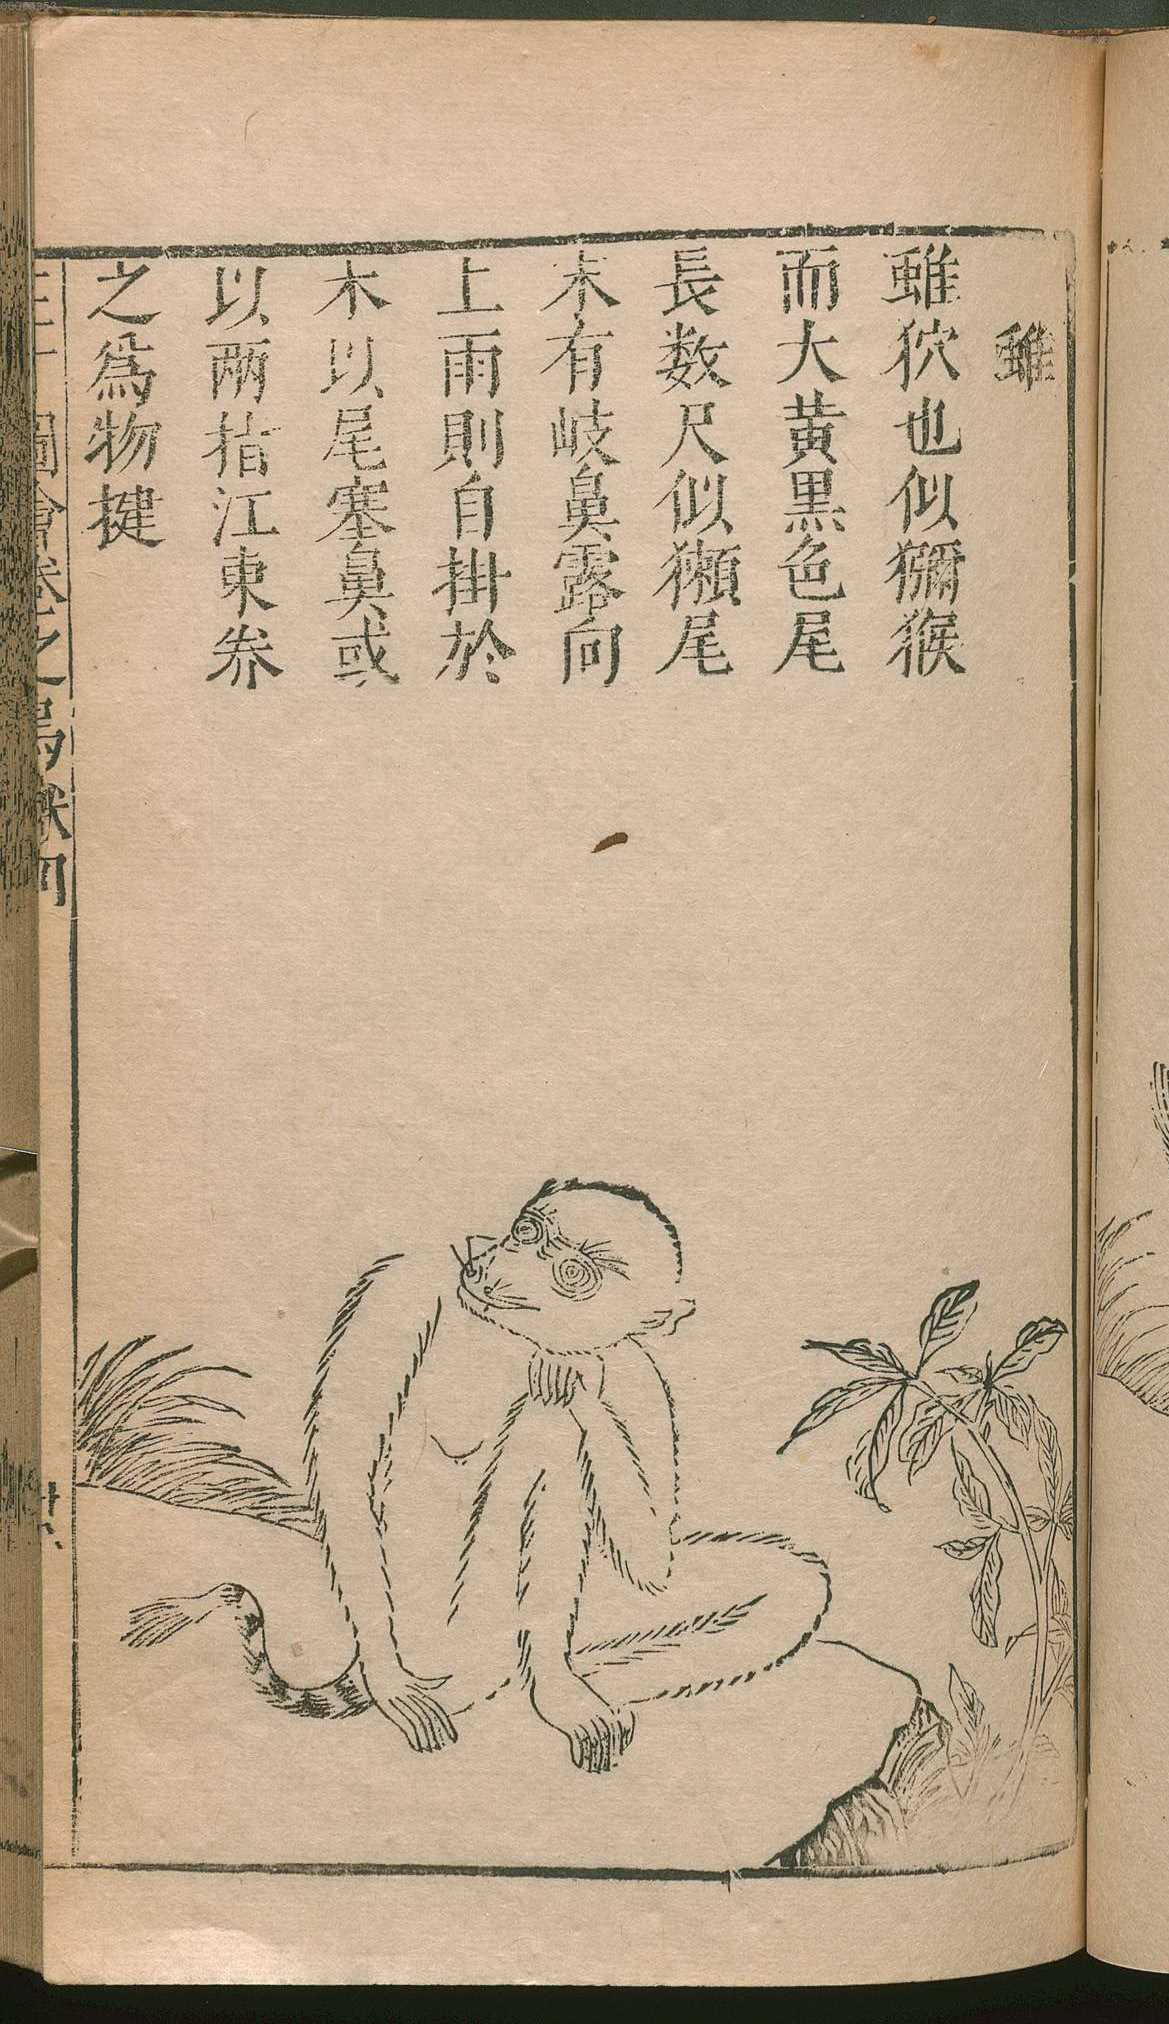 蜼
蜼狖也似獼猴
而大黄黒色尾
長数尺似獺尾
末有岐鼻露向
上雨則自掛於
木以尾塞鼻或
以兩指江東养
之爲物揵
三才圖會卷之鳥獸四